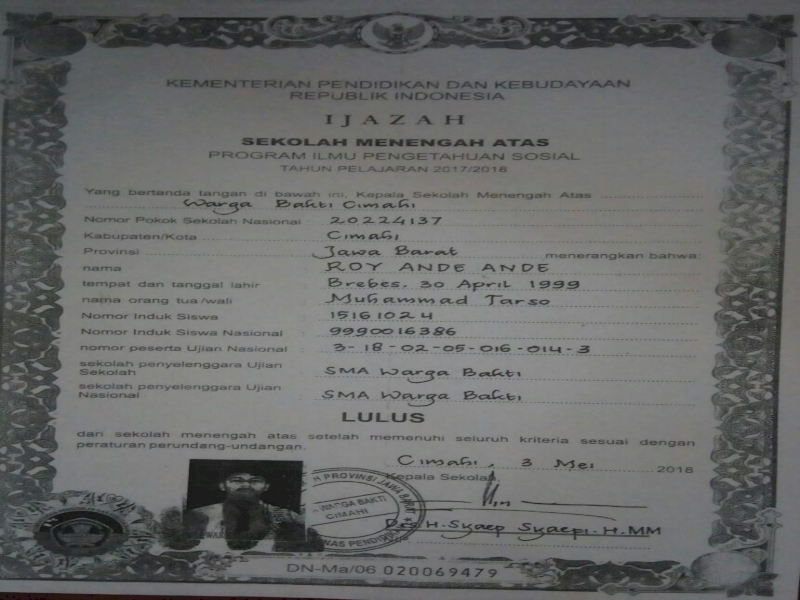 KEMENTERIAN PENDIDIKAN DAN KEBUDAYAAN
REPUBLIK INDONESIA
IJAZAH
SEKOLAH MENENGAH ATAS
PROGRAM ILMU PENGETAHUAN SOSIAL
TAHUN PELAJARAN 2017/2018
Yang bertanda tangan di bawah ini, Kepala Sekolah Menengah Atas
Warga Bakti Cimahi
Nomor Pokok Sekolah Nasional : 20224137
Kabupaten/Kota : Cimahi
Provinsi : Jawa Barat menerangkan bahwa:
nama : ROY ANDE ANDE
tempat dan tanggal lahir : Brebes, 30 April 1999
nama orang tua/wali : Muhammad Tarso
Nomor Induk Siswa : 15161024
Nomor Induk Siswa Nasional : 9990016386
nomor peserta Ujian Nasional : 3-18-02-05-016-014-3
sekolah penyelenggara Ujian
Sekolah : SMA Warga Bakti
sekolah penyelenggara Ujian
Nasional : SMA Warga Bakti
LULUS
dari sekolah menengah atas setelah memenuhi seluruh kriteria sesuai dengan
peraturan perundang-undangan.
Cimahi, 3 Mei 2018
Kepala Sekolah
PROVINSI JAWA BARAT
WARGA BAKTI
CIMAHI
DINAS PENDIDIKAN
Drs. H. Syaep Syaepi. H. MM
DN-Ma/06 020069479